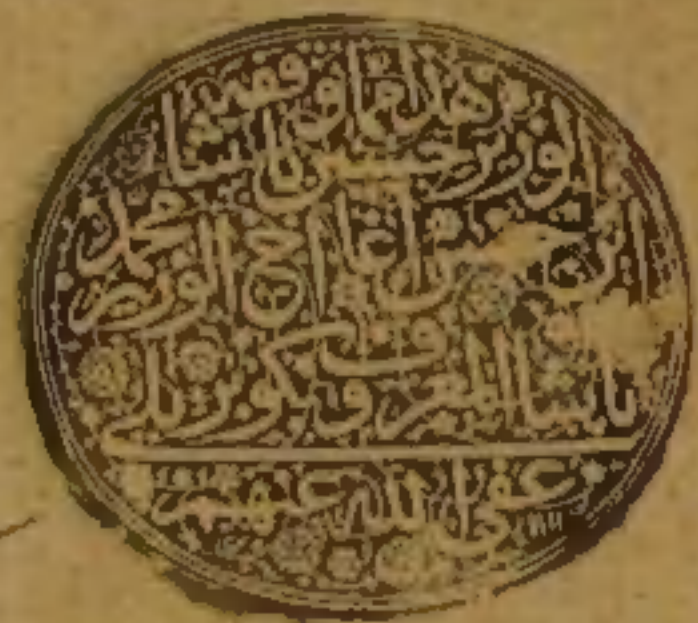 هذا مما وقفه
الوزير حسين باشا
ابن حسن آغا اخ الوزير محمد
باشا المعروف بكوپريلي
عفى الله عنهم